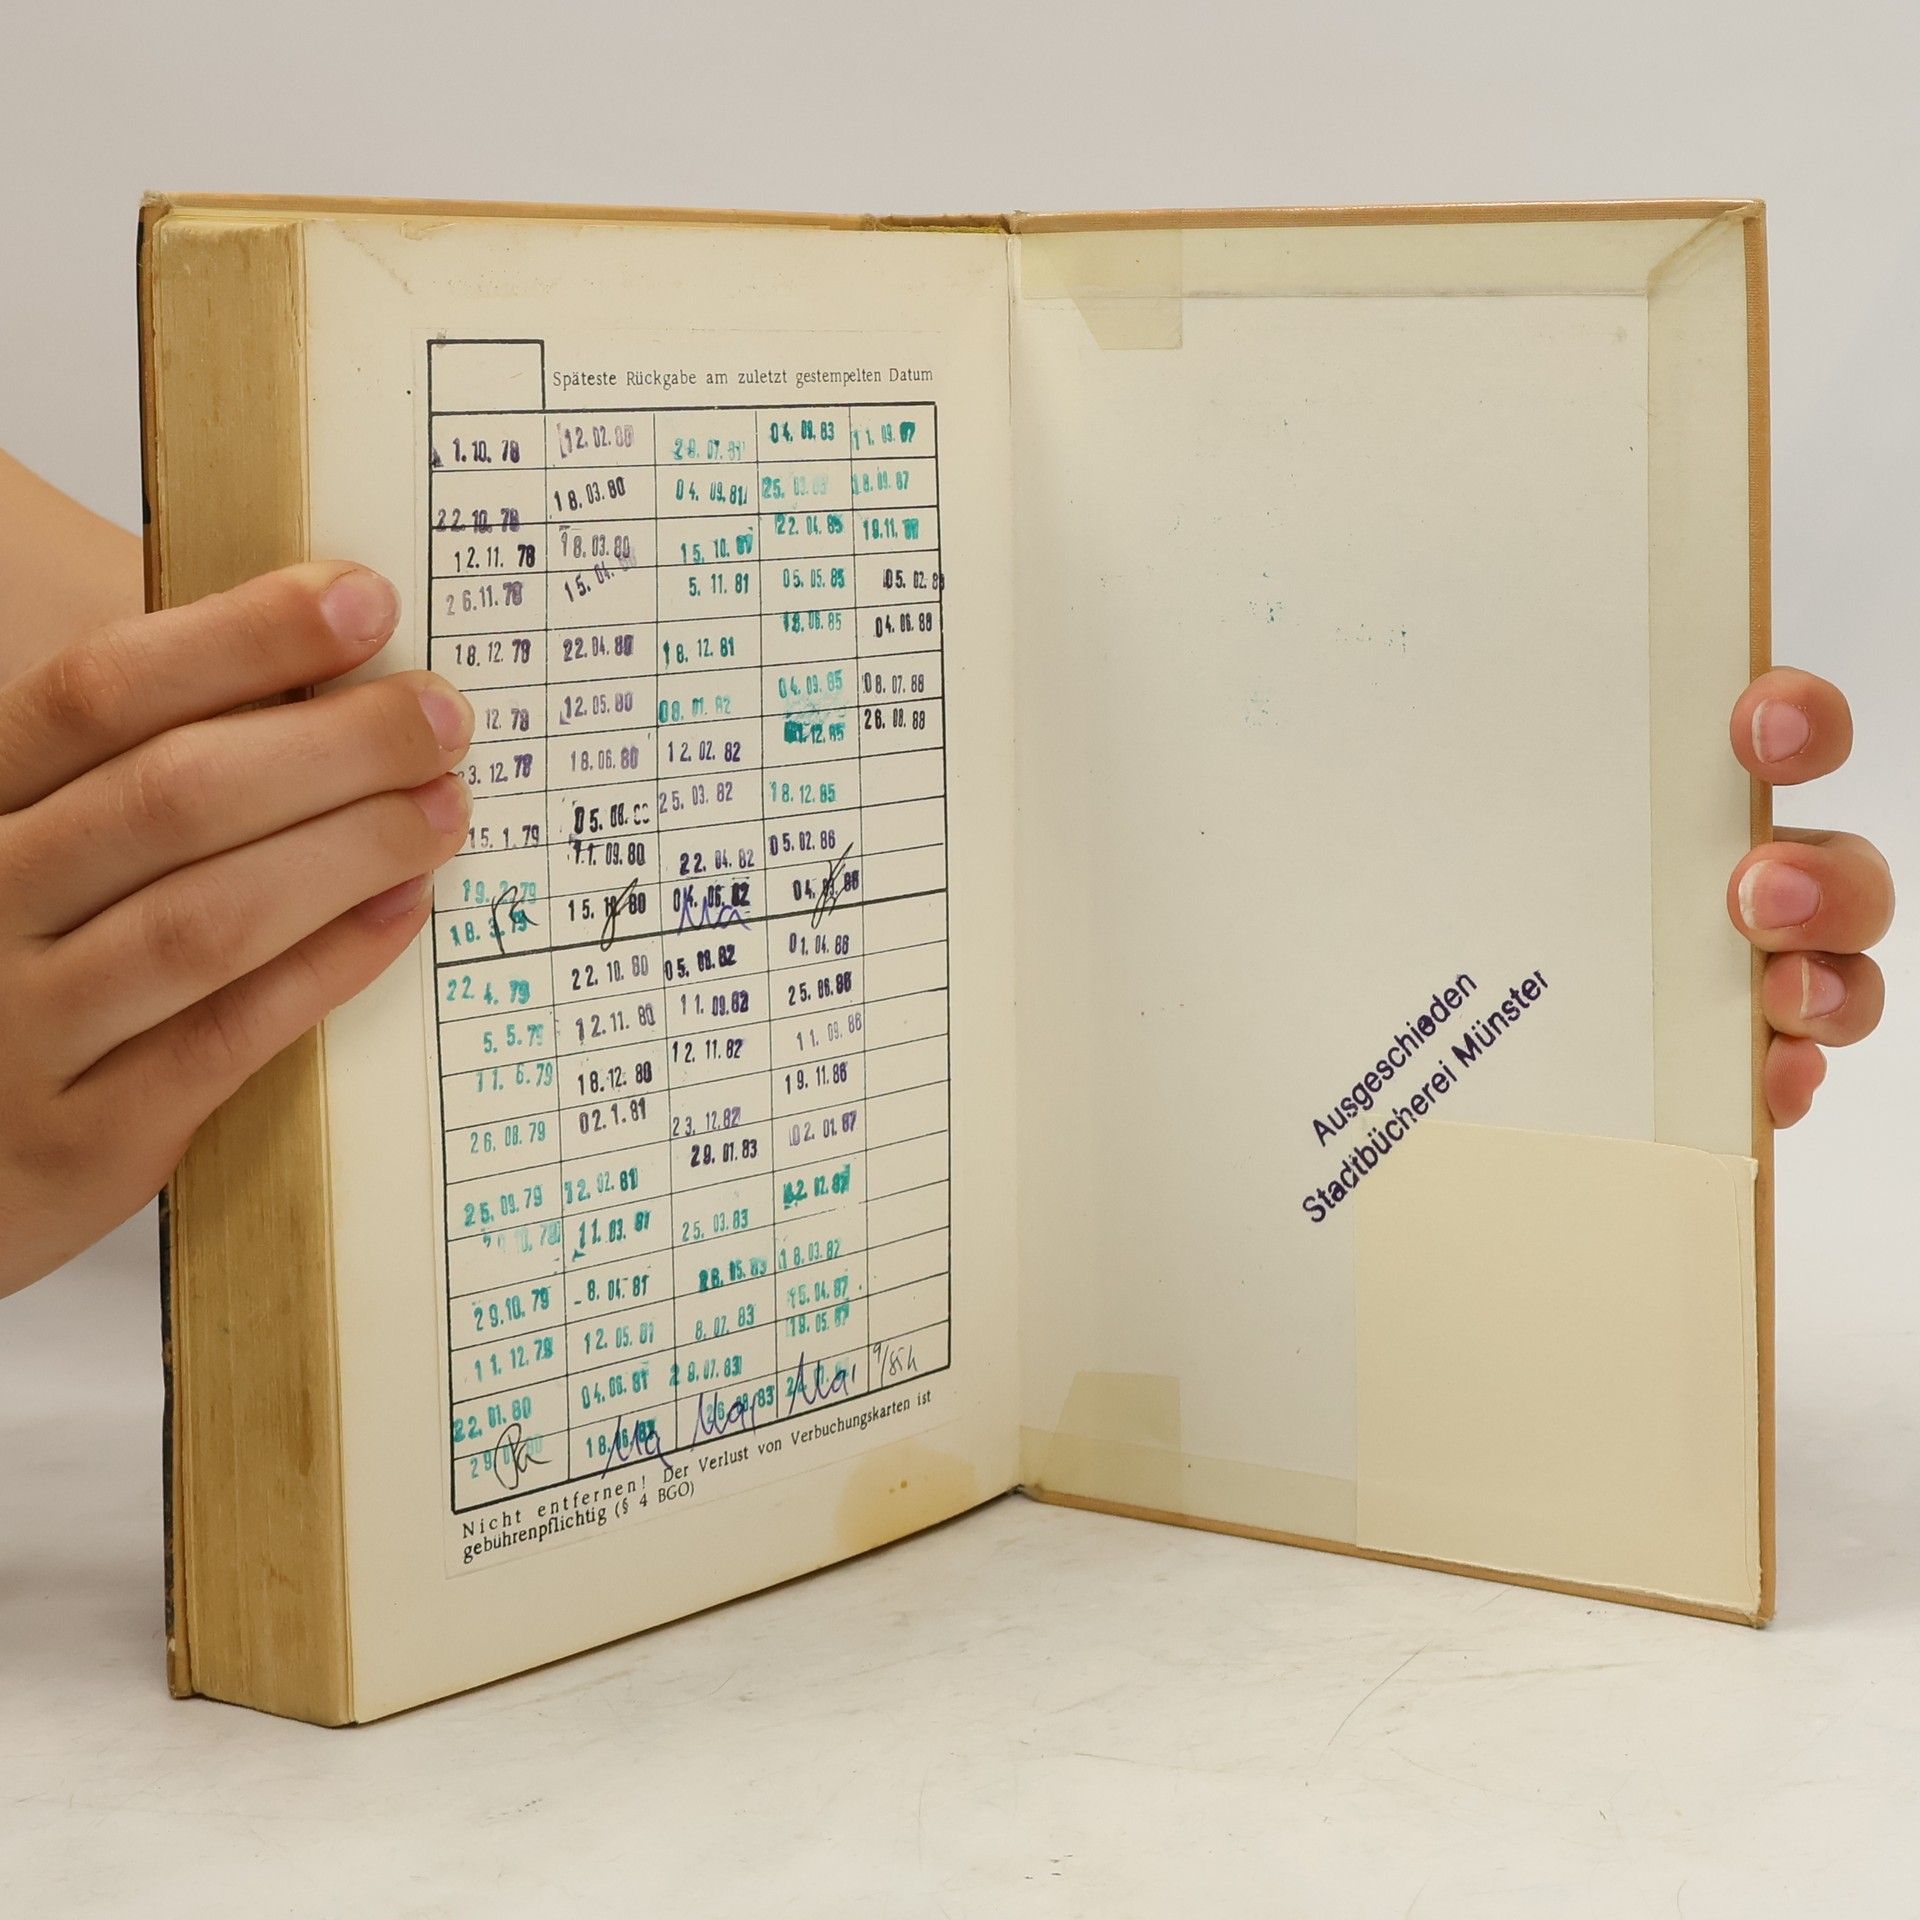 Späteste Rückgabe am zuletzt gestempelten Datum
1.10.78
22.10.78
12.11.78
26.11.78
18.12.78
12.78
3.12.78
15.1.79
19.2.79
18.3.79
22.4.79
5.5.79
11.6.79
26.08.79
25.09.79
29.10.79
11.12.79
22.01.80
12.02.80
18.03.80
18.03.80
15.04.
22.04.80
12.05.80
18.06.80
05.08.
11.09.80
15.10.80
22.10.80
12.11.80
18.12.80
02.1.81
12.02.81
11.03.81
8.04.81
12.05.81
04.06.81
18.
29.07.81
04.09.81
15.10.81
5.11.81
18.12.81
08.01.82
12.02.82
25.03.82
22.04.82
04.06.82
05.08.82
11.09.82
12.11.82
23.12.82
29.01.83
25.03.83
26.05.83
8.07.83
29.07.83
04.09.83
25.
22.04.85
05.05.85
18.06.85
04.09.85
12.85
18.12.85
05.02.86
04. 86
01.04.86
25.06.86
11.09.86
19.11.86
02.01.87
12.02.87
18.03.87
15.04.87
19.05.87
11.09.87
18.09.87
19.11.87
05.02.88
04.06.88
08.07.88
26.08.88
Nicht entfernen! Der Verlust von Verbuchungskarten ist
gebührenpflichtig (§ 4 BGO)
Ausgeschieden
Stadtbücherei Münster